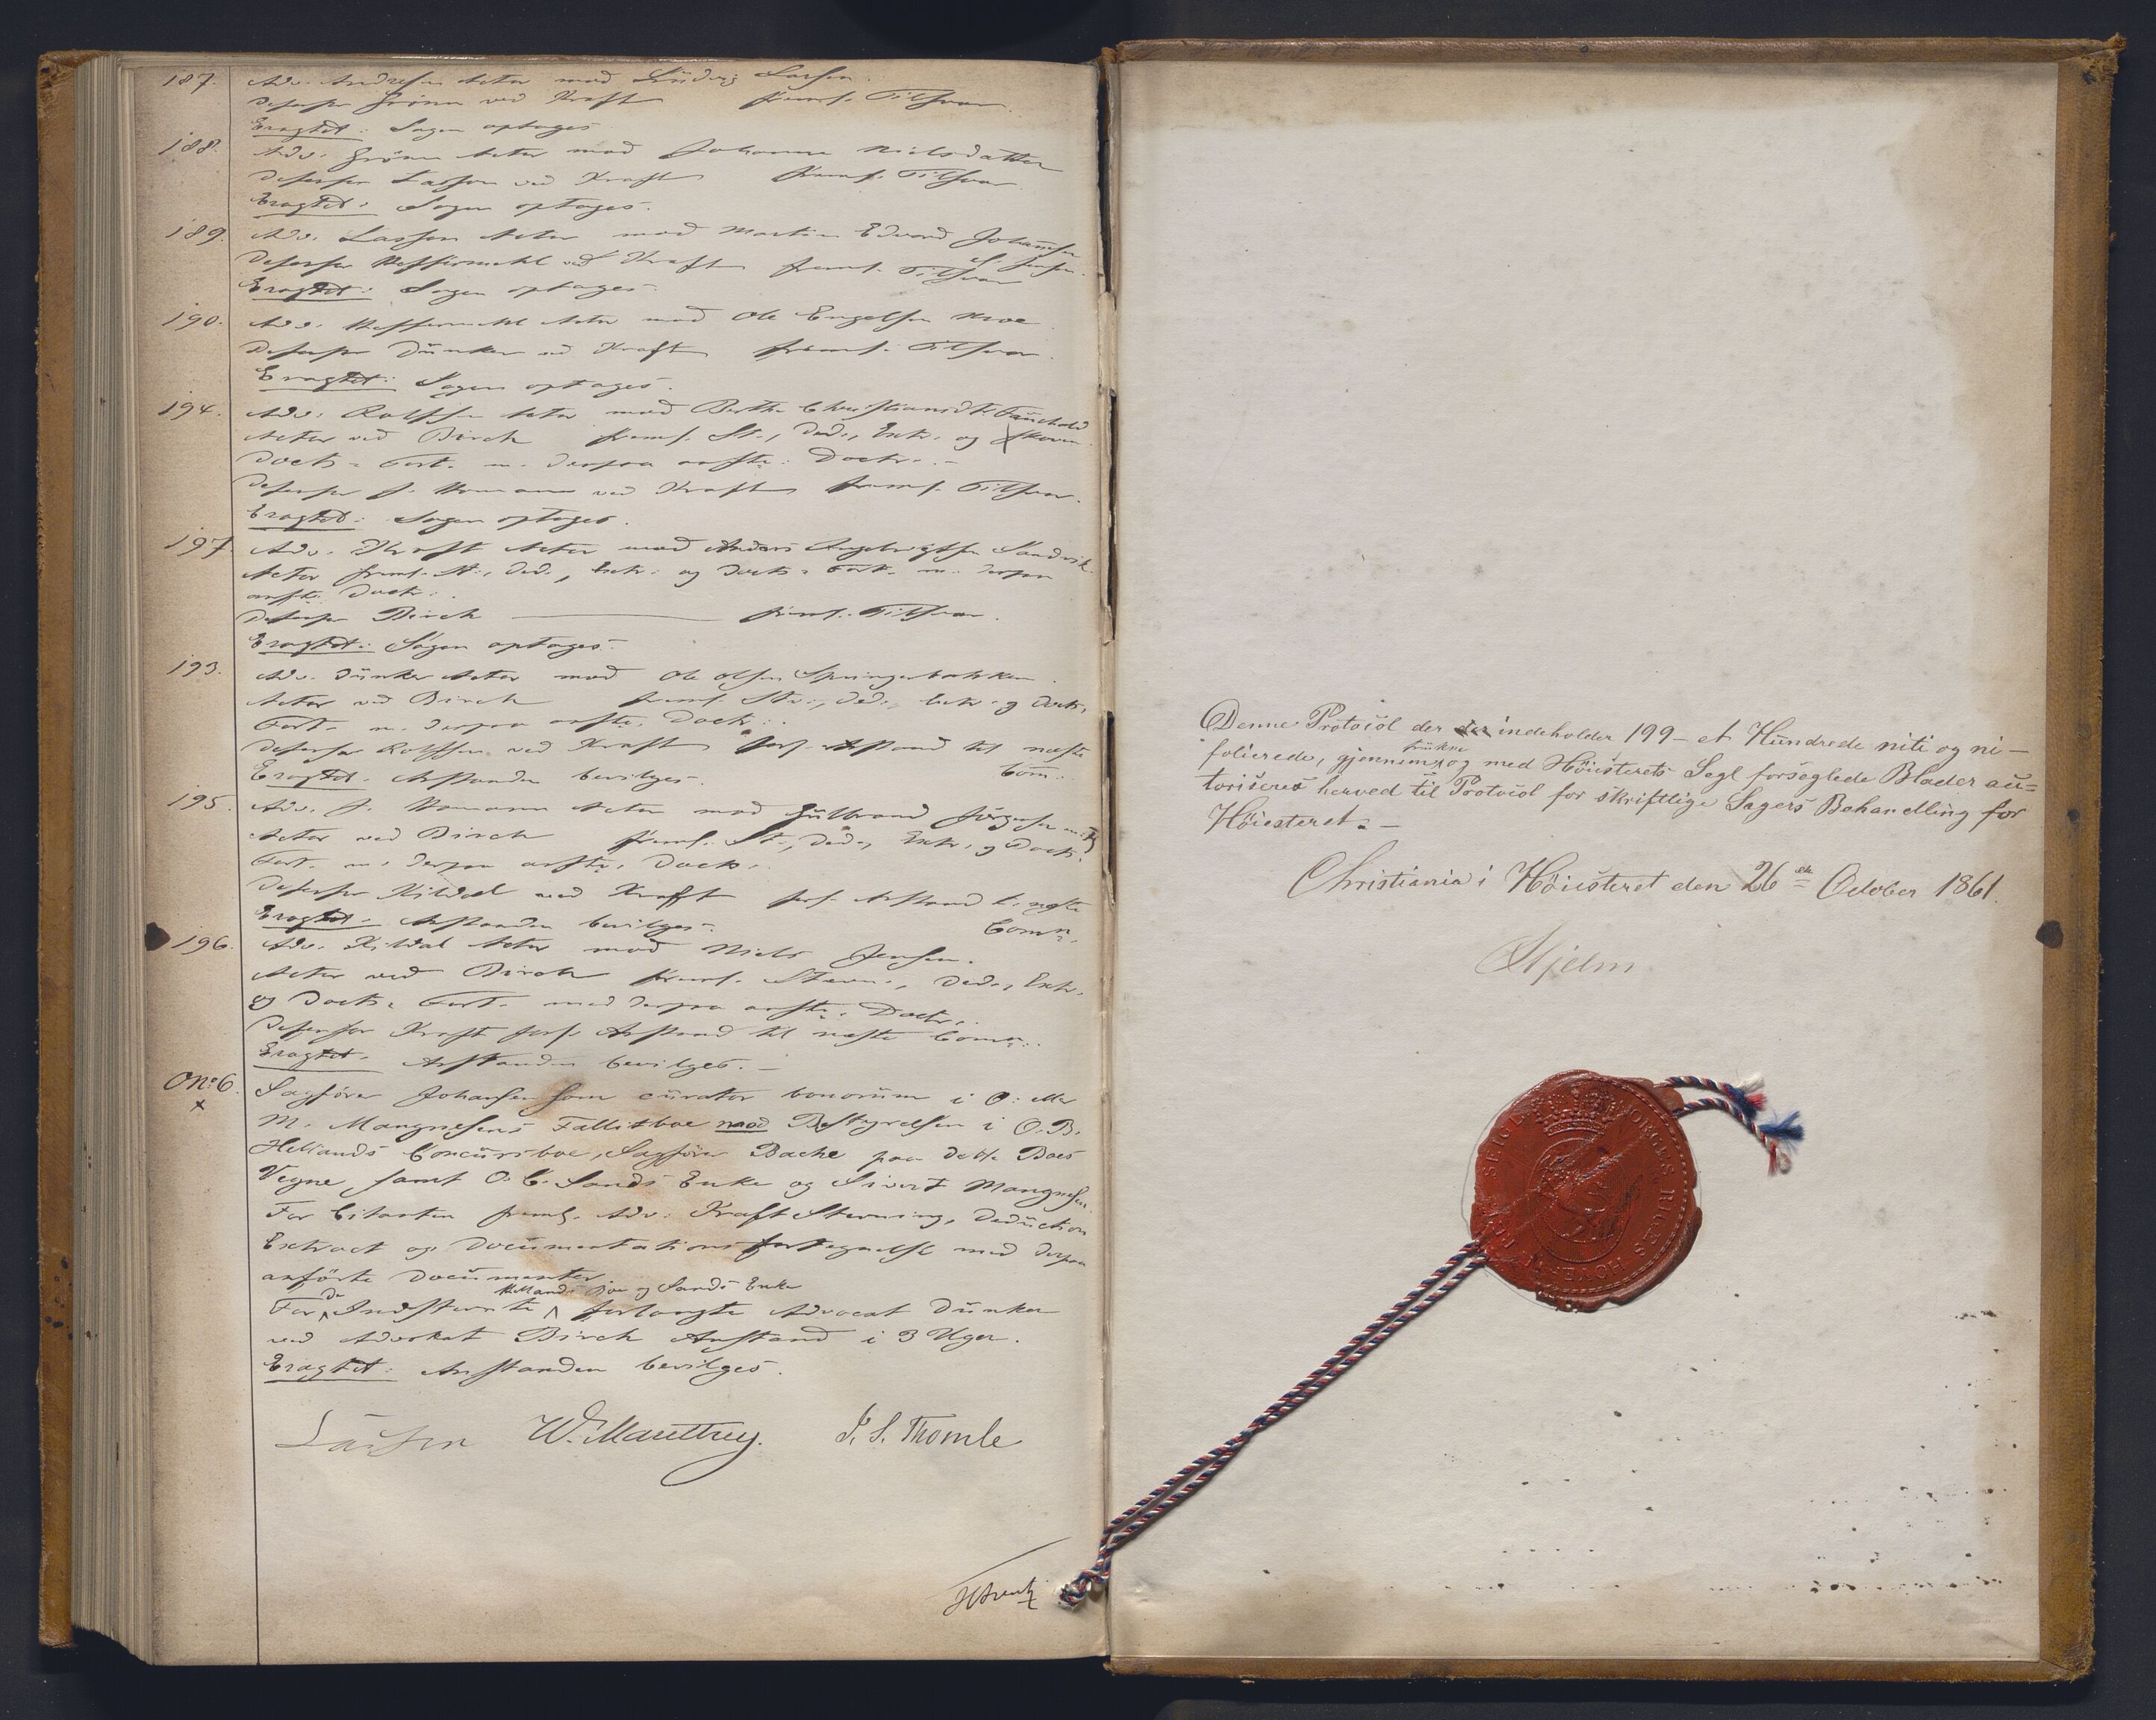 187. Adv. Andresen Actor mod Ludvig Larsen.
Defensor Grönn ved Kraft freml. Tilsvar.
Eragtet: Sagen optages
188. Adv. Grönn Actor mod Johanne Nielsdatter
Defensor Lasson ved Kraft freml. Tilsvar.
Eragtet: Sagen optages.
189. Adv. Lasson Actor mod Martin Edvard Johannesen
Defensor Heffermehl ved Kraft freml. Tilsvar
Eragtet: Sagen optages.
190. Adv. Heffermehl Actor mod Ole Engelsen
Defensor Dunker ved Kraft freml. Tilsvar.
Eragtet: Sagen optages.
194. Adv. Rolfsen Actor mod Berthe Christiansdt.
Actor ved Birch freml. St., Ded., Extr. og
Doct. Fort. m. derpaa anfte. Doctr.
Defensor J. Homann ved Kraft freml. Tilsvar.
Eragtet: Sagen optages.
197 Adv. Kraft Actor mod Anders Ingebrigtsen Sandvik.
Actor freml. St., Ded., Extr. og Doct. Fort. m. derpaa
anfte. Doct.
Defensor Birch freml. Tilsvar.
Eragtet: Sagen optages.
193. Adv. Dunker Actor mod Ole Olsen
Actor ved Birch freml. St., Ded., Extr. og Doct.
Fort. m. derpaa anfte. Doct.
Defensor Rolfsen ved Kraft forl. Anstand til næste
Eragtet. Anstanden bevilges. Com.
195. Adv. J. Homann Actor mod Gulbrand Jörgensen
Actor ved Birch freml. St., Ded., Extr. og Doct.
Fort. m. derpaa anfte. Doct.
Defensor Kildal ved Kraft forl. Anstand t. næste
Eragtet. Anstanden bevilges. Comn.
196. Adv. Kildal Actor mod Niels Jensen.
Actor ved Birch freml. Stevn., Ded., Extr.
og Doct. Fort. med derpaa anfte. Doct.
Defensor Kraft forl. Anstand til næste Comn.
Eragtet. Anstanden bevilges.
No 6. Sagförer Johansen som curator bonorum i O: eller
x
M. Mangnesens Fallitboe mod Bestyrelsen i O. B.
Hellands Concursboe, Sagförer Bache paa dette Boes
Vegne, samt O. C. Sands Enke og Sivert Mangnesen.
For Citanten freml. Adv. Kraft Stevning, Deduction
Extract og Documentationsfortegnelse med derpaa
anförte Documenter
de Hellands Boe og Sands Enke
For Indstevnte forlangte Advocat Dunker
ved Advokat Birch Anstand i 3 Uger.
Eragtet: Anstanden bevilges.
Lasson W. Mariboe J. S. Thomle
Denne Protocol der der indeholder 199 - et Hundrede niti og ni -
trukne
folierede, gjennem og med Höiesterets Segl forseglede Blader au=
toriseres herved til Protocol for skriftlige Sagers Behandling for
Höiesteret. -
Christiania i Höiesteret den 26de October 1861.
Hjelm
NORGES RIGES HÖIESTERETS SEIGL